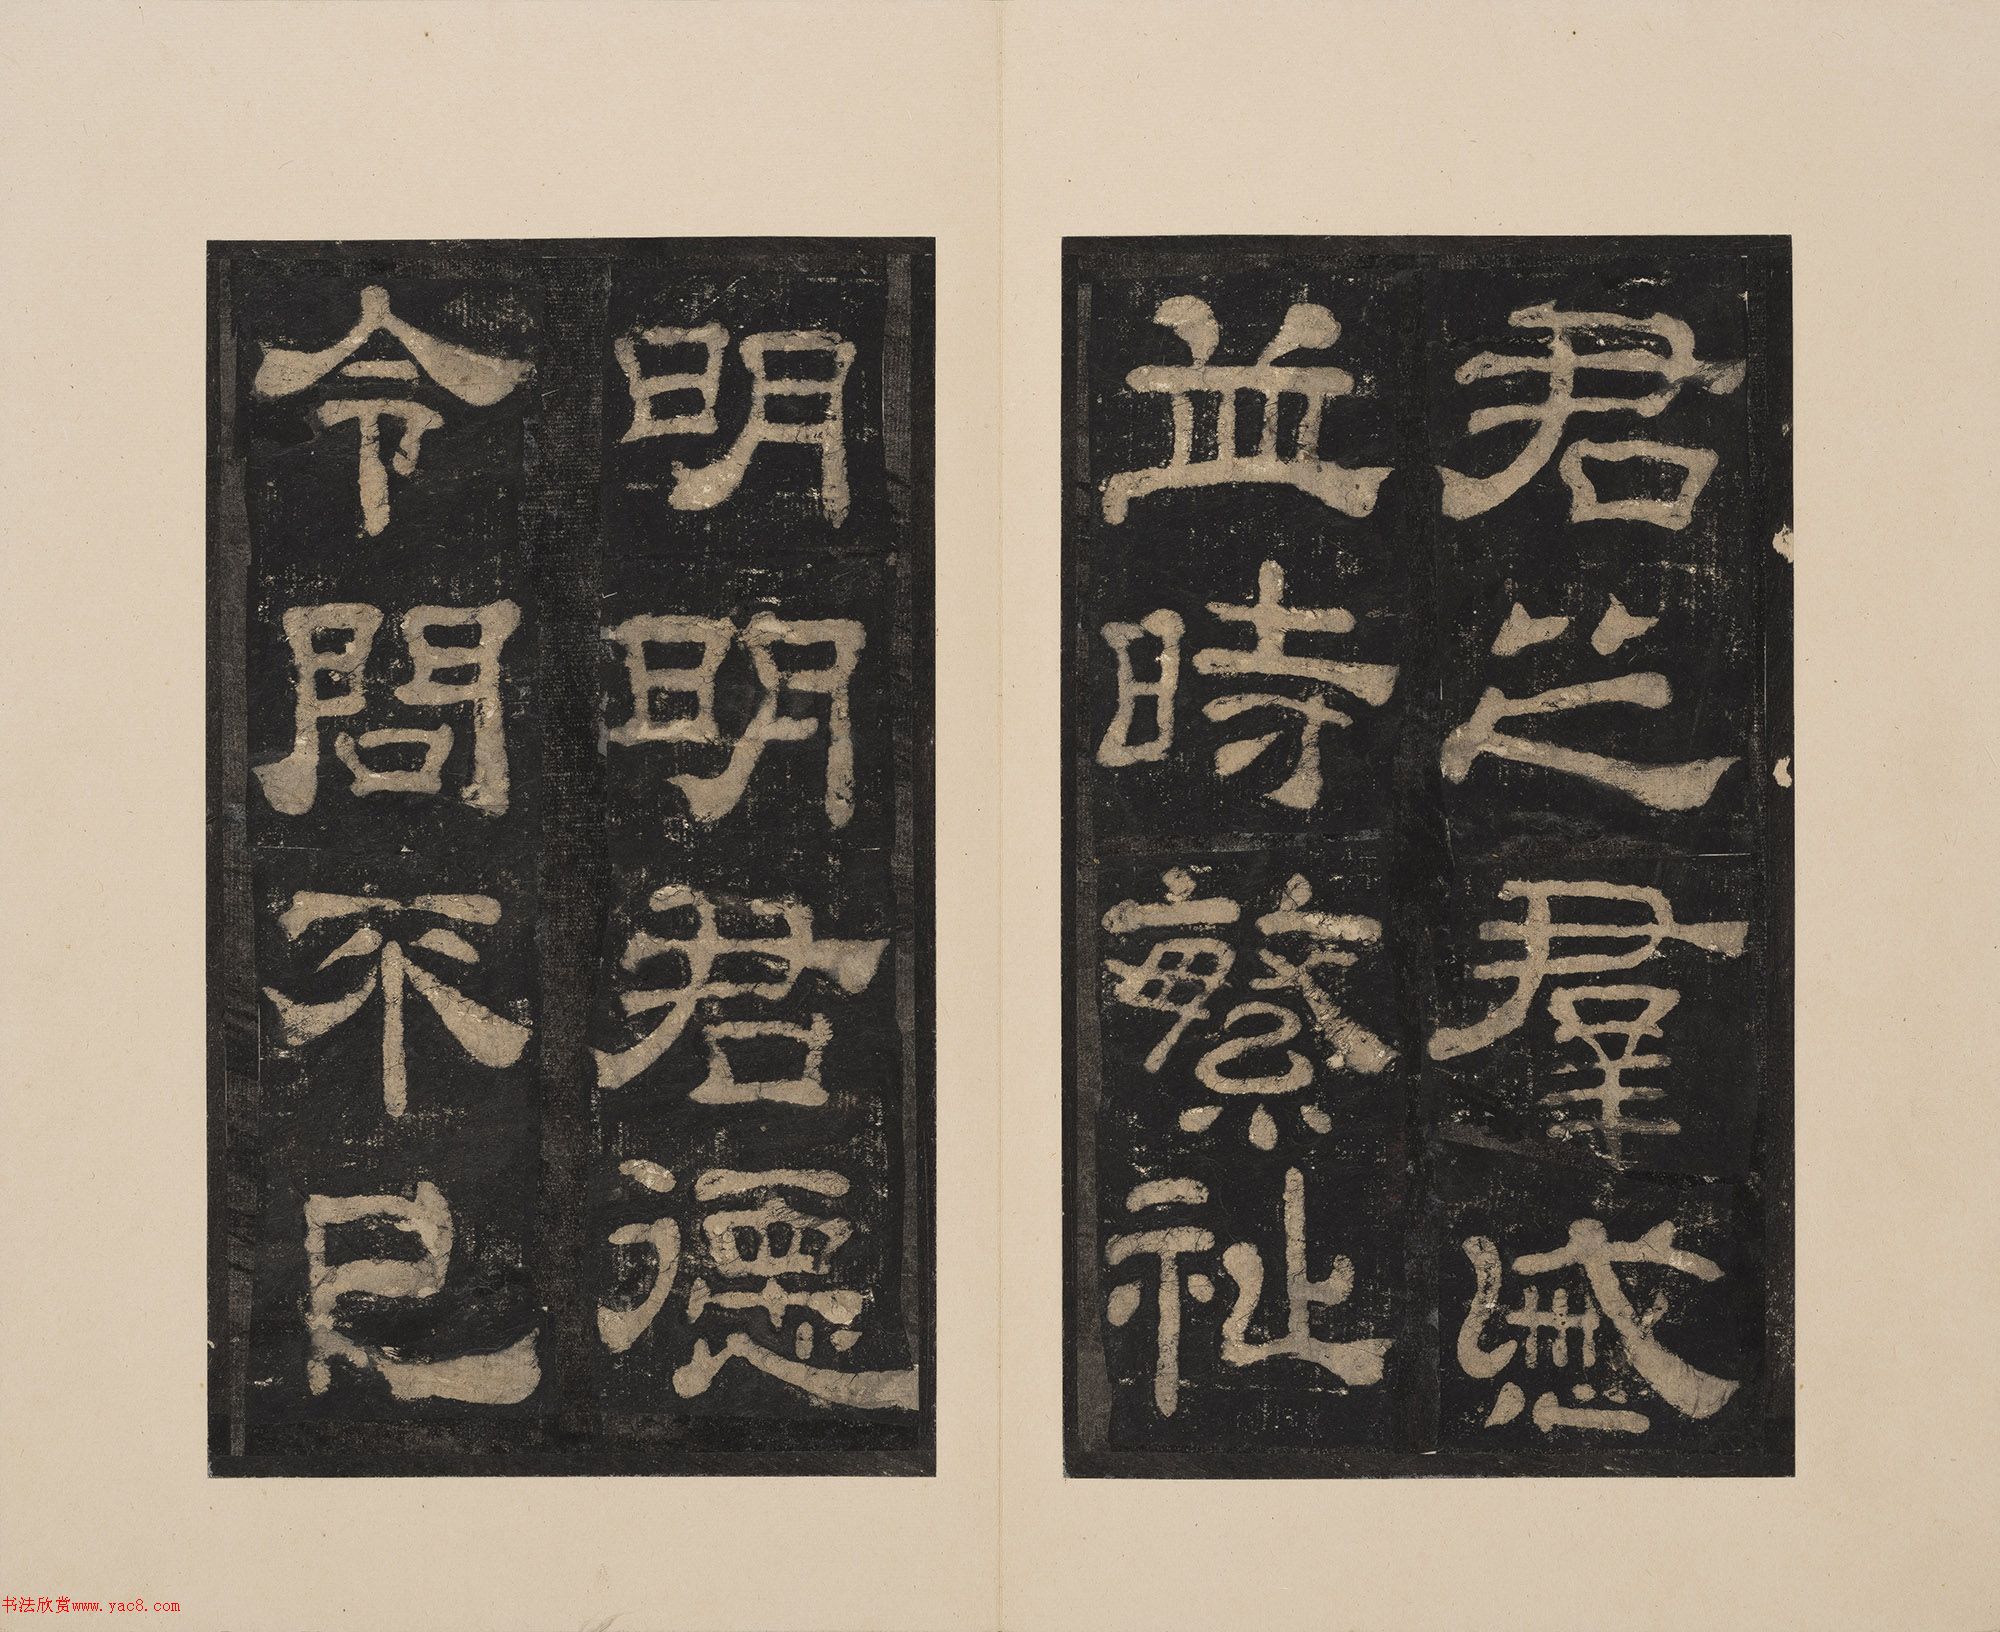 君之羣慼
並時繁祉
明明君德
令問不已
书法欣赏www.yac8.com